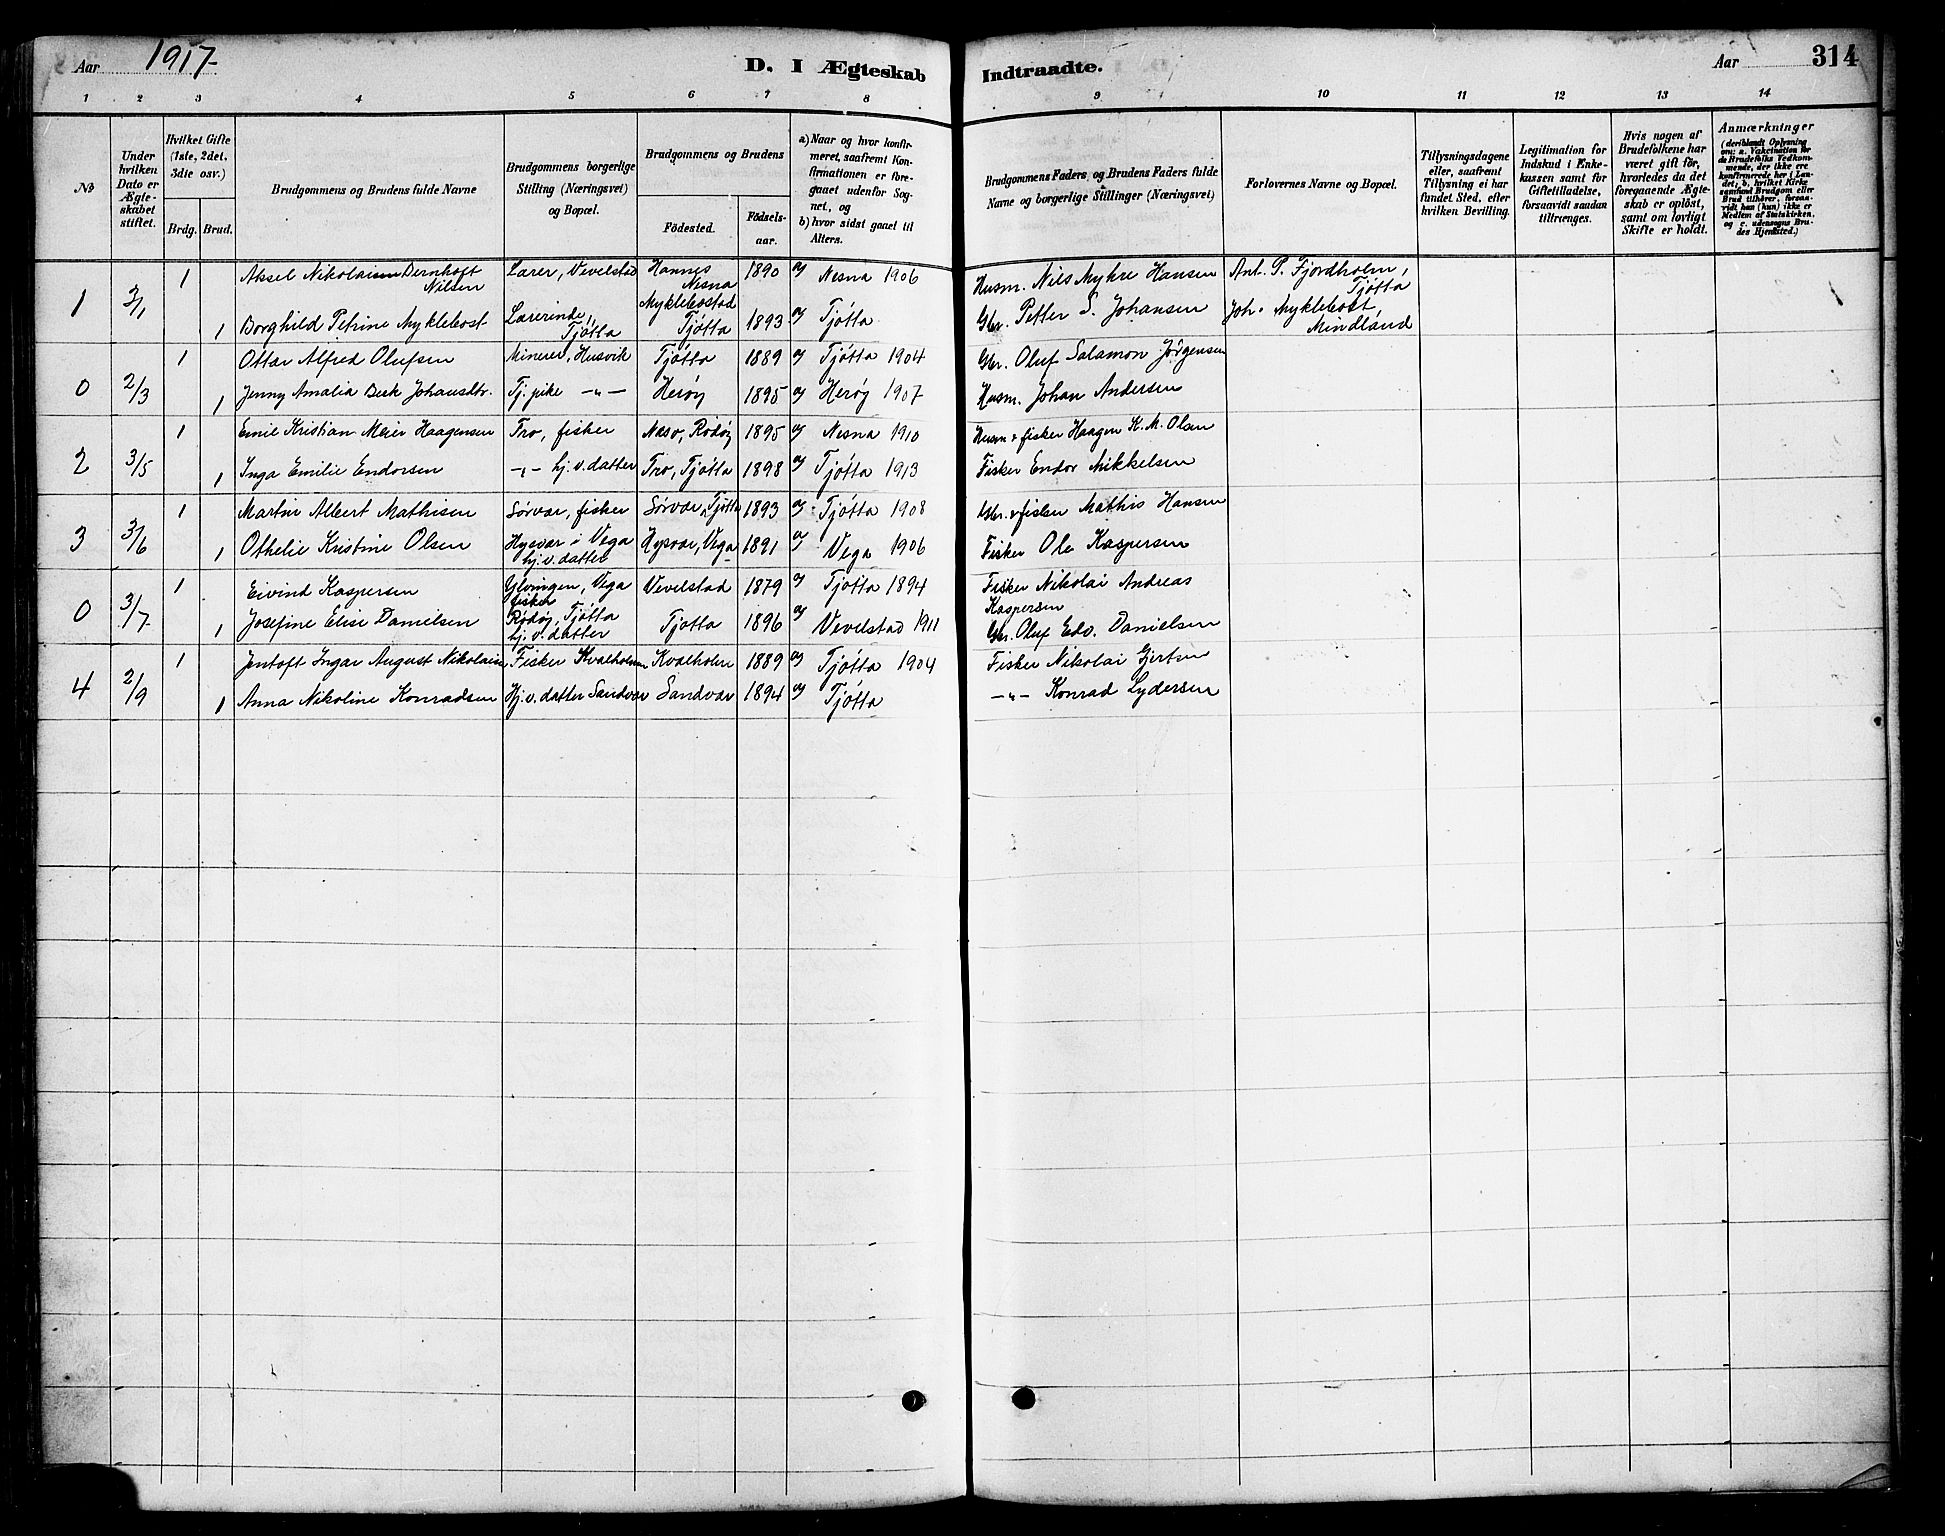 Aar 1917
D. I Ægteskab Indtraadte.
Aar 314
1 2 3 4 5 6 7 8 9 10 11 12 13 14
No
Under hvilken Dato er Ægteskabet stiftet.
Hvilket Gifte (1ste, 2det, 3die osv.)
Brdg. Brud.
Brudgommens og Brudens fulde Navne
Brudgommens borgerlige Stilling (Næringsvei) og Bopæl.
Brudgommens og Brudens
Födested.
Födselsaar.
a) Naar og hvor konfirmeret, saafremt Konfirmationen er foregaaet udenfor Sognet, og
b) hvor sidst gaaet til Alters.
Brudgommens Faders og Brudens Faders fulde Navne og borgerlige Stillinger (Næringsvei)
Forlovernes Navne og Bopæl.
Tillysningsdagene eller, saafremt Tillysning ei har fundet Sted, efter hvilken Bevilling.
Legitimation for Indskud i Ænkekassen samt for Giftetilladelse, forsaavidt saadan tiltrænges.
Hvis nogen af Brudefolkene har været gift för, hvorledes da det foregaaende Ægteskab er oplöst, samt om lovligt Skifte er holdt.
Anmærkninger (deriblandt Oplysning om: a. Vakcination for de Brudefolks Vedkommende, der ikke ere konfirmerede her i Landet; b. hvilket Kirkesamfund Brudgom eller Brud tilhörer, forsaavidt han (hun) ikke er Medlem af Statskirken, og c. udensogns Brudes Hjemsted.)
1 2/1 1 Aksel Nikolai Bernhoft Nilsen Lærer, Vevelstad Hannes Nesna 1890 a) Nesna 1906 Husm. Nils Myhre Hansen Ant. P. Fjordholm, Tjøtta
1 Borghild Petrine Myklebost Lærerinde, Tjøtta Myklebostad Tjøtta 1893 a) Tjøtta Gbr. Petter S. Johansen Joh. Myklebost Mindland
0 2/3 1 Ottar Alfred Olufsen Minerer, Husvik Tjøtta 1889 a) Tjøtta 1904 Gbr. Oluf Salamon Jørgensen
1 Jenny Amalia Berk Johansdtr. Tj. pike -"- Herøy 1895 a) Herøy 1907 Husm. Johan Andersen
2 3/5 1 Emil Kristian Meier Haagensen Tro, fisker Næsø, Rødøy 1895 a) Nesna 1910 Husm & fisker Haagen K. M. Olsen
1 Inga Emilie Endorsen -"- hj.v. datter Tro, Tjøtta 1898 a) Tjøtta 1913 Fisker Endor Mikkelsen
3 3/6 1 Martin Albert Mathisen Sørvær, fisker Sørvær, Tjøtta 1893 a) Tjøtta 1908 Gbr. & fisker Mathis Hansen
1 Othelie Kristine Olsen Hysvær i Vega hj.v. datter Hysvær, Vega 1891 a) Vega 1906 Fisker Ole Kaspersen
0 3/7 1 Eivind Kaspersen Ylvingen, Vega fisker Vevelstad 1879 a) Tjøtta 1894 Fisker Nikolai Andreas Kaspersen
1 Josefine Elise Danielsen Rødøy, Tjøtta hj.v. datter Tjøtta 1896 a) Vevelstad 1911 Gbr. Oluf Edv. Danielsen
4 2/9 1 Jentoft Ingar August Nikolaisen Fisker Kvalholmen Kvalholm 1889 a) Tjøtta 1904 Fisker Nikolai Gjertsen
1 Anna Nikoline Konradsen Hj.v. datter Sandvær Sandvær 1894 a) Tjøtta -"- Konrad Lydersen